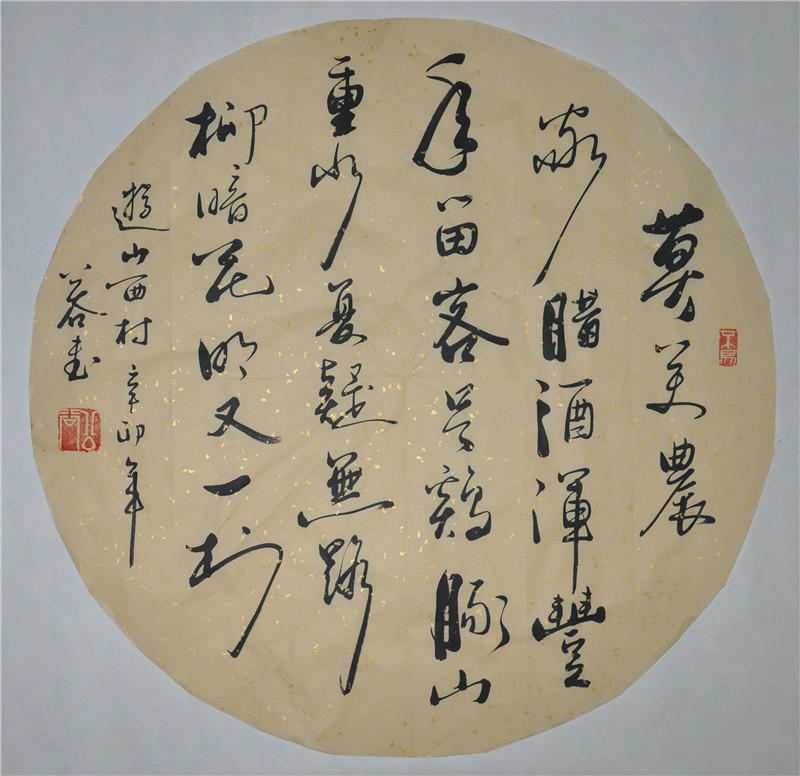 莫笑農
家腊酒渾豐
年留客足鷄豚山
重水复疑無路
柳暗花明又一村
遊山西村 辛卯年
书